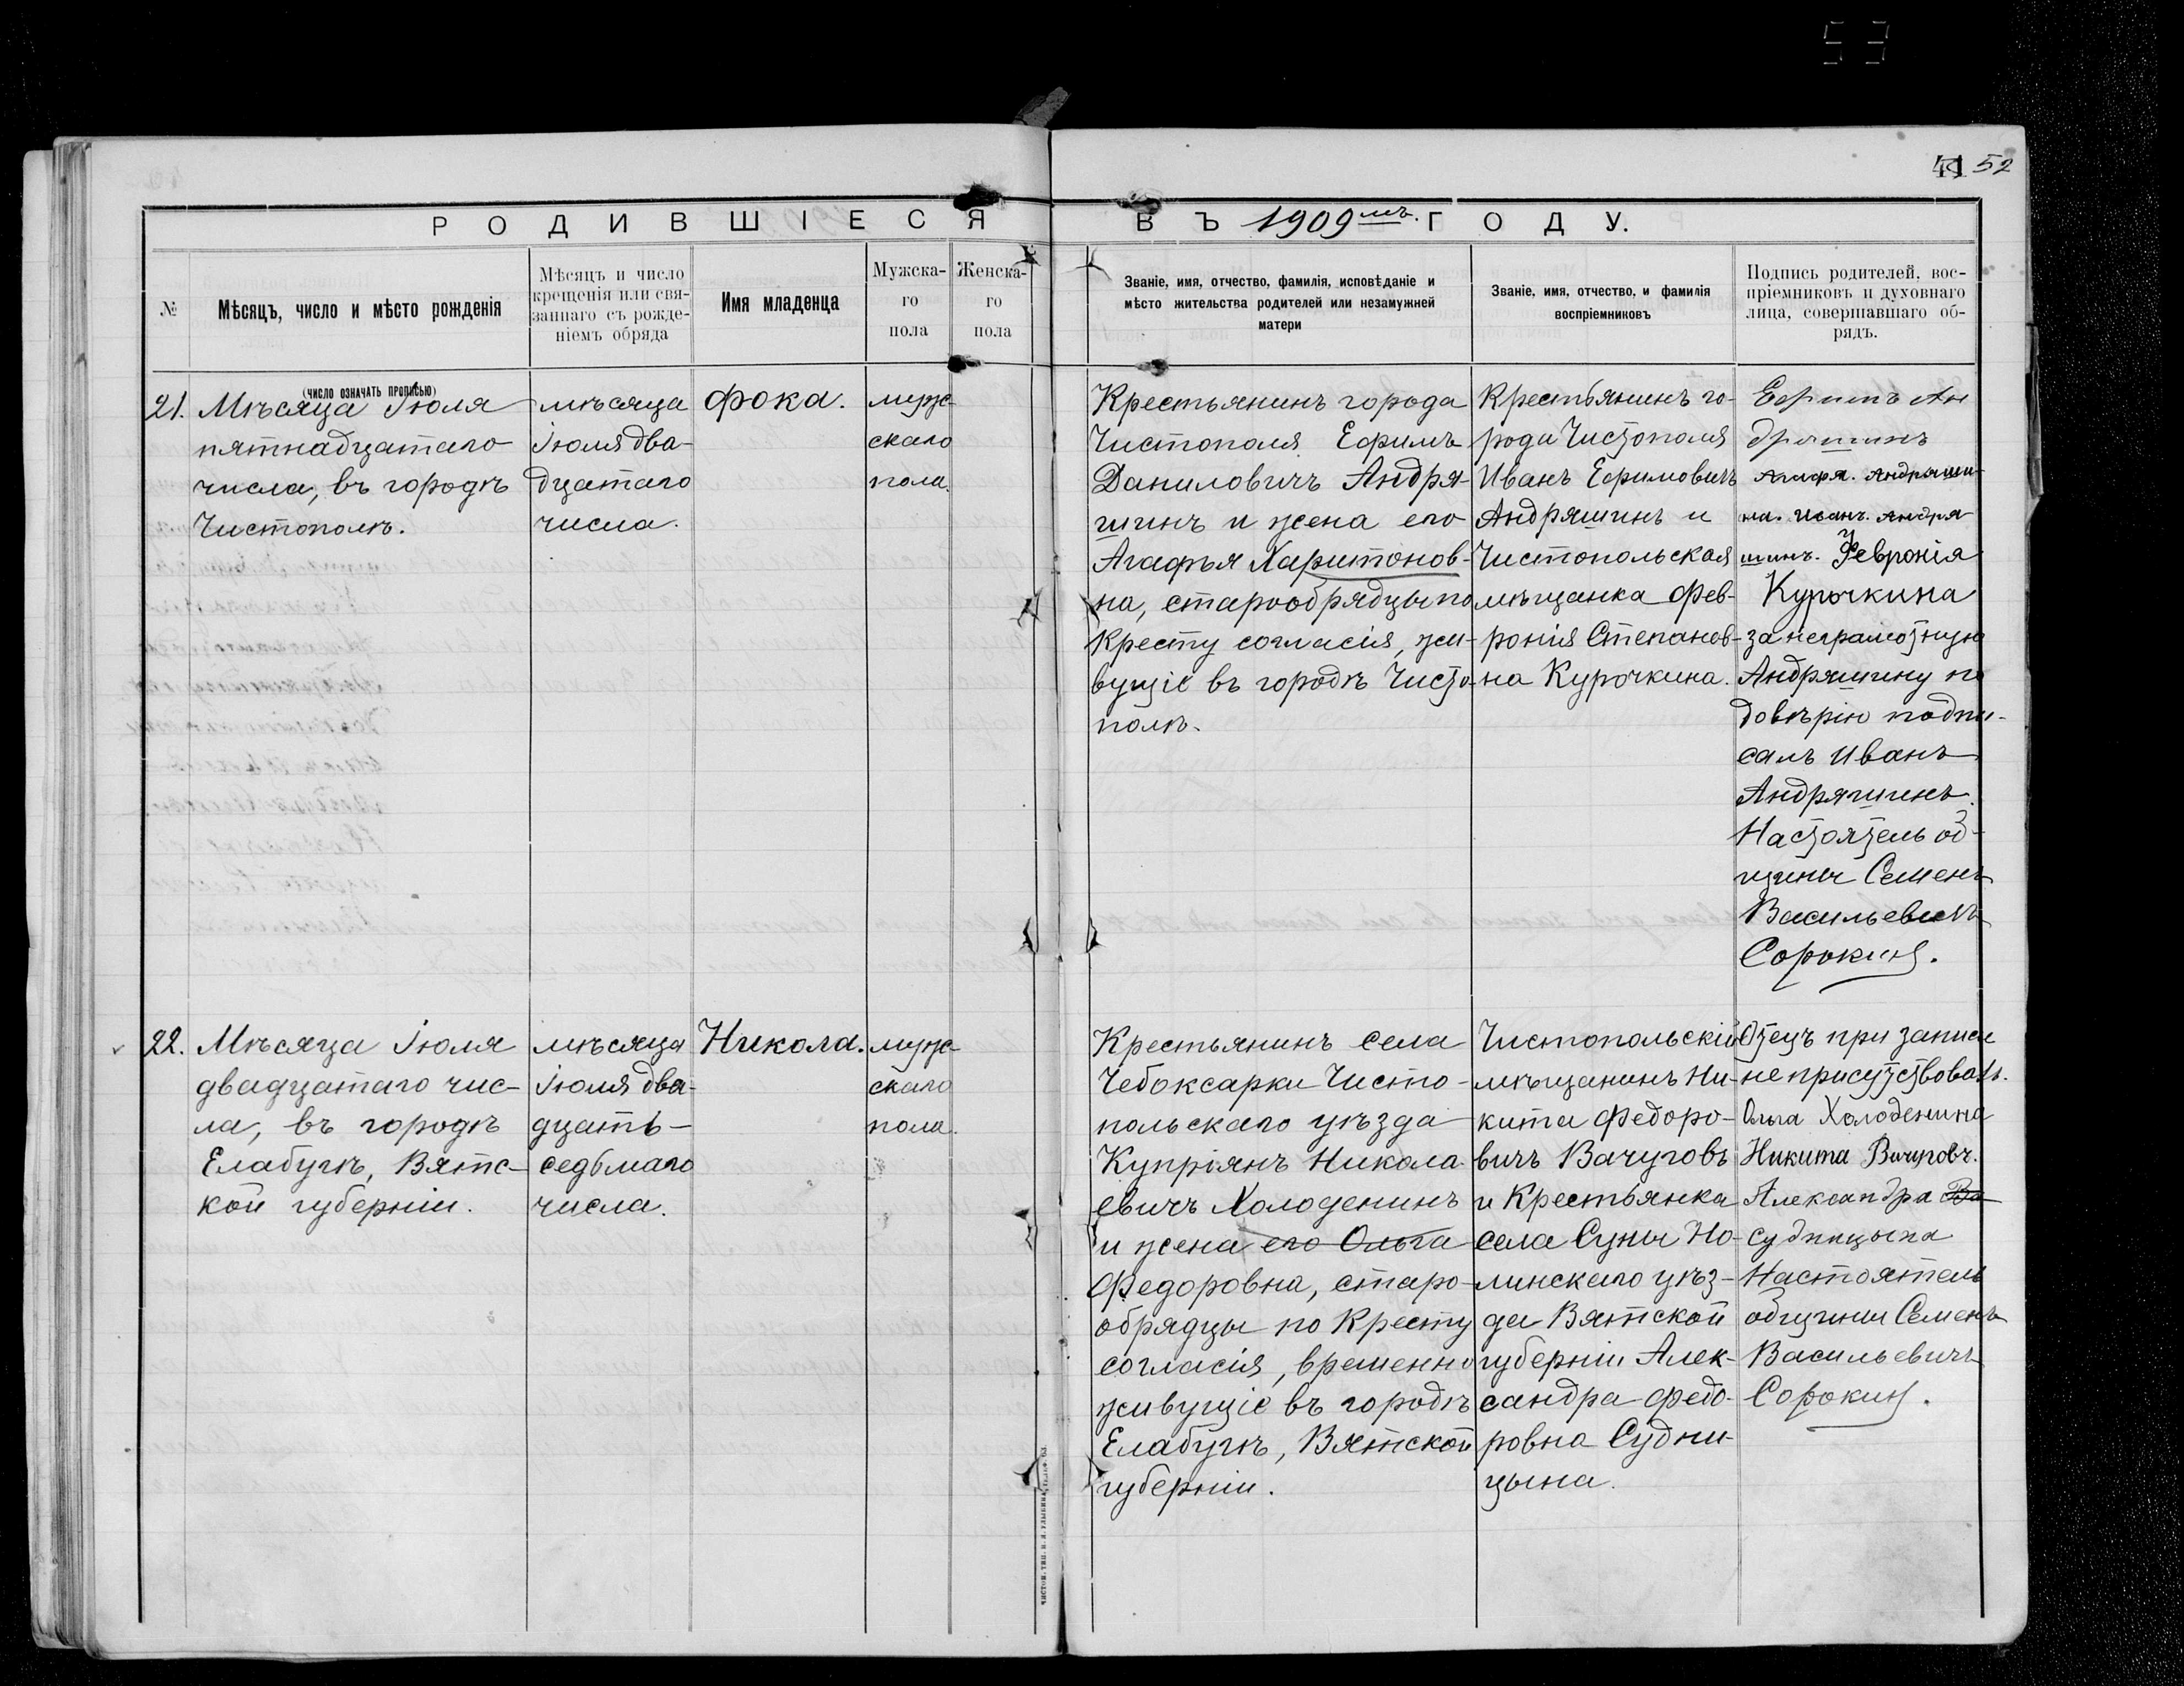 53
41 52
РОДИВШІЕСЯ
ВЪ 1909мъ. ГОДУ.
№
Мѣсяцъ, число и мѣсто рожденія
Мѣсяцъ и число
крещенія или свя-
заннаго съ рожде-
ніемъ обряда
Имя младенца
Мужска-
го
пола
Женска-
го
пола
Званіе, имя, отчество, фамилія, исповѣданіе и
мѣсто жительства родителей или незамужней
матери
Званіе, имя, отчество, и фамилія
воспріемниковъ
Подпись родителей, вос-
пріемниковъ и духовнаго
лица, совершавшаго об-
рядъ.
(число означать прописью)
21.
Мѣсяца Іюля
пятнадцатаго
числа, въ городѣ
Чистополѣ.
мѣсяца
Іюля два-
дцатаго
числа.
Фока.
муж-
скаго
пола.
Крестьянинъ города
Чистополя Ефимъ
Даниловичъ Андря-
шинъ и жена его
Агафья Харитонов-
на, старообрядцы по
Кресту согласія, жи-
вущіе въ городѣ Чисто-
полѣ.
Крестьянинъ го-
рода Чистополя
Иванъ Ефимовичъ
Андряшинъ и
Чистопольская
мѣщанка Фев-
ронія Степанов-
на Курочкина.
Ефимъ Ан
дряшинъ
Агафя. Андряши-
на. Иванъ. Андря
шинъ. Февронія
Курочкина
за неграмотную
Андряшину по
довѣрію подпи-
салъ Иванъ
Андряшинъ.
Настоятель об-
щины Семенъ
Васильевичъ
Сорокинъ.
22.
Мѣсяца Іюля
двадцатаго чис-
ла, въ городѣ
Елабугѣ, Вятс-
кой губерніи.
мѣсяца
Іюля два-
дцать-
седьмаго
числа.
Никола.
муж-
скаго
пола.
Крестьянинъ села
Чебоксарки Чисто-
польскаго уѣзда
Купріянъ Никола-
евичъ Холоденинъ
и жена его Ольга
Федоровна, старо-
обрядцы по Кресту
согласія, временно
живущіе въ городѣ
Елабугѣ, Вятской
губерніи.
Чистопольскій
мѣщанинъ Ни-
кита Федоро-
вичъ Вачуговъ
и Крестьянка
села Суны Но-
линскаго уѣз-
да Вятской
губерніи Алек-
сандра Федо-
ровна Судни-
цына.
Отецъ при записи
не присутствовалъ.
Ольга Холоденина
Никита Вачуговъ.
Александра Ва
Судницына
Настоятель
общины Семенъ
Васильевичъ
Сорокинъ.